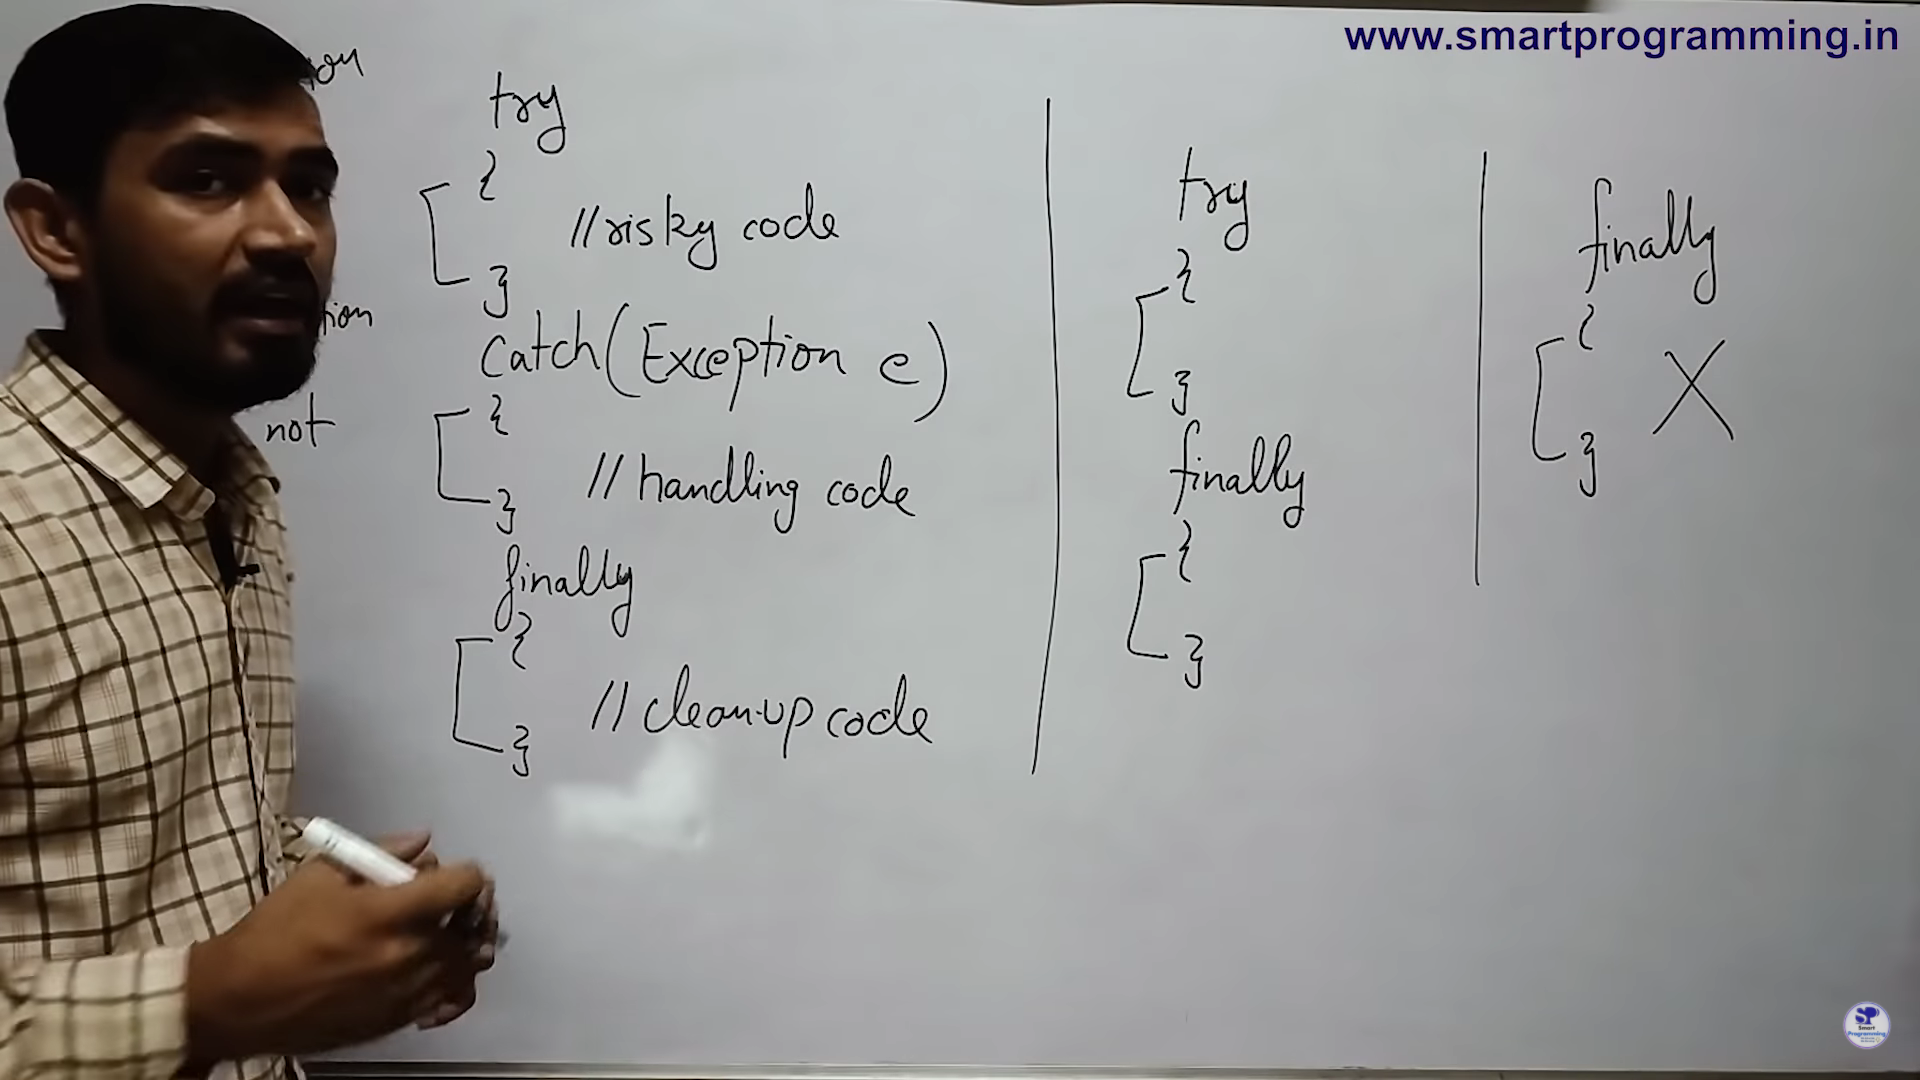 www.smartprogramming.in
try
{
//risky code
}
catch(Exception e)
{
//handling code
}
finally
{
//clean-up code
}
try
{
}
finally
{
}
finally
{
X
}
not
SP
Smart
Programming